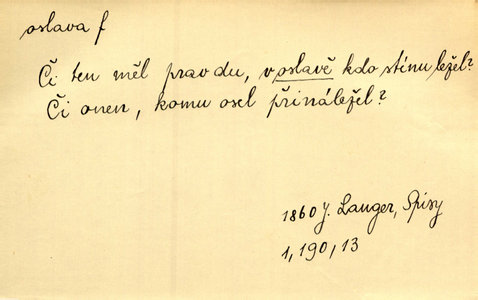 oslava f
Či ten měl pravdu, v oslavě kdo stínu ležel?
Či onen, komu osel přináležel?
1860 J. Langer, Spisy
1, 190, 13